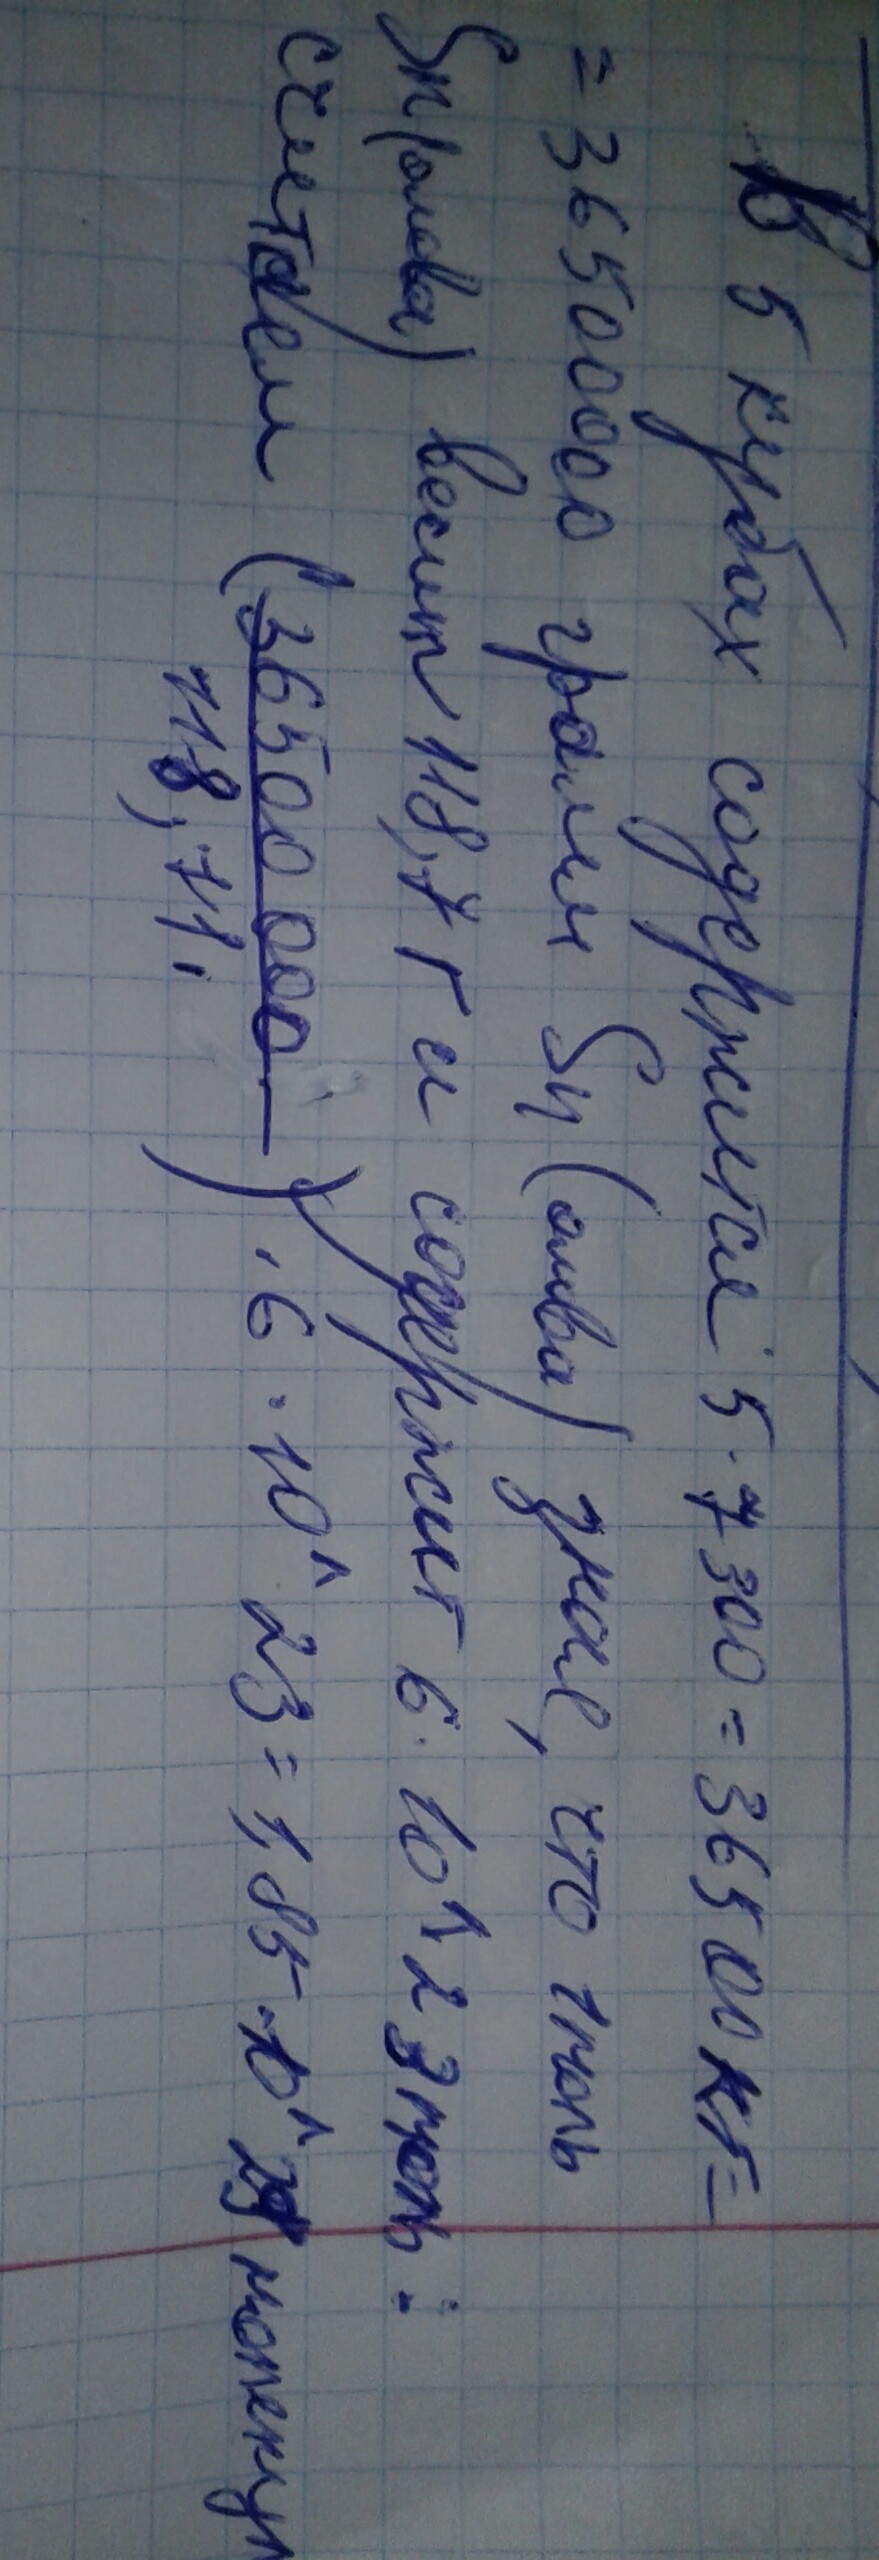 В 5 кубах содержится 5·7300=36500кг=
=36500000 грамм Sn (олова) зная, что 1 моль
Sn(олова) весит 118,7 г и содержит 6·10^23 моль:
считаем (36500000
118,71.) ·6·10^23=1,85·10^29 молекул